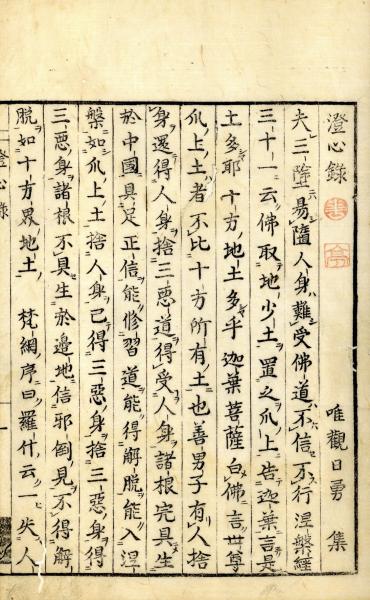 澄心錄
唯觀日勇 集
夫三易隨人身難受佛道不信不行涅槃經
三十一云佛取地少土置之爪上告迦葉言是
土多耶十方地土多乎迦葉菩薩白佛言世尊
爪上土者不比十方所有土也善男子有人捨
身還得人身捨三惡道得受人身諸根完具生
於中國具足正信能修習道能得解脫能入涅
槃如爪上土捨人身已得三惡身捨三惡身得
三惡身諸根不具生於邊地信邪倒見不得解
脫如十方界地土 梵網序曰羅什云一失人
澄心錄
一